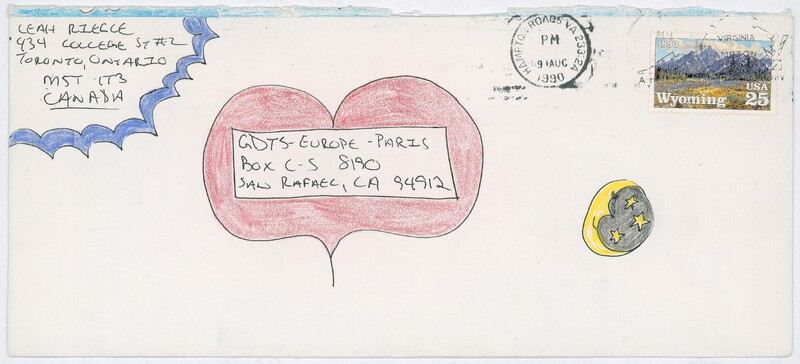 LEAH RIEGLE
434 COLLEGE ST #2
TORONTO, ONTARIO
M5T 1T3
CANADA
HAMPTON ROADS VA 23324
PM
9 AUG
1990
VIRGINIA
1890
Wyoming
USA
25
GDTS-EUROPE-PARIS
BOX C-S 8190
SAN RAFAEL, CA 94912